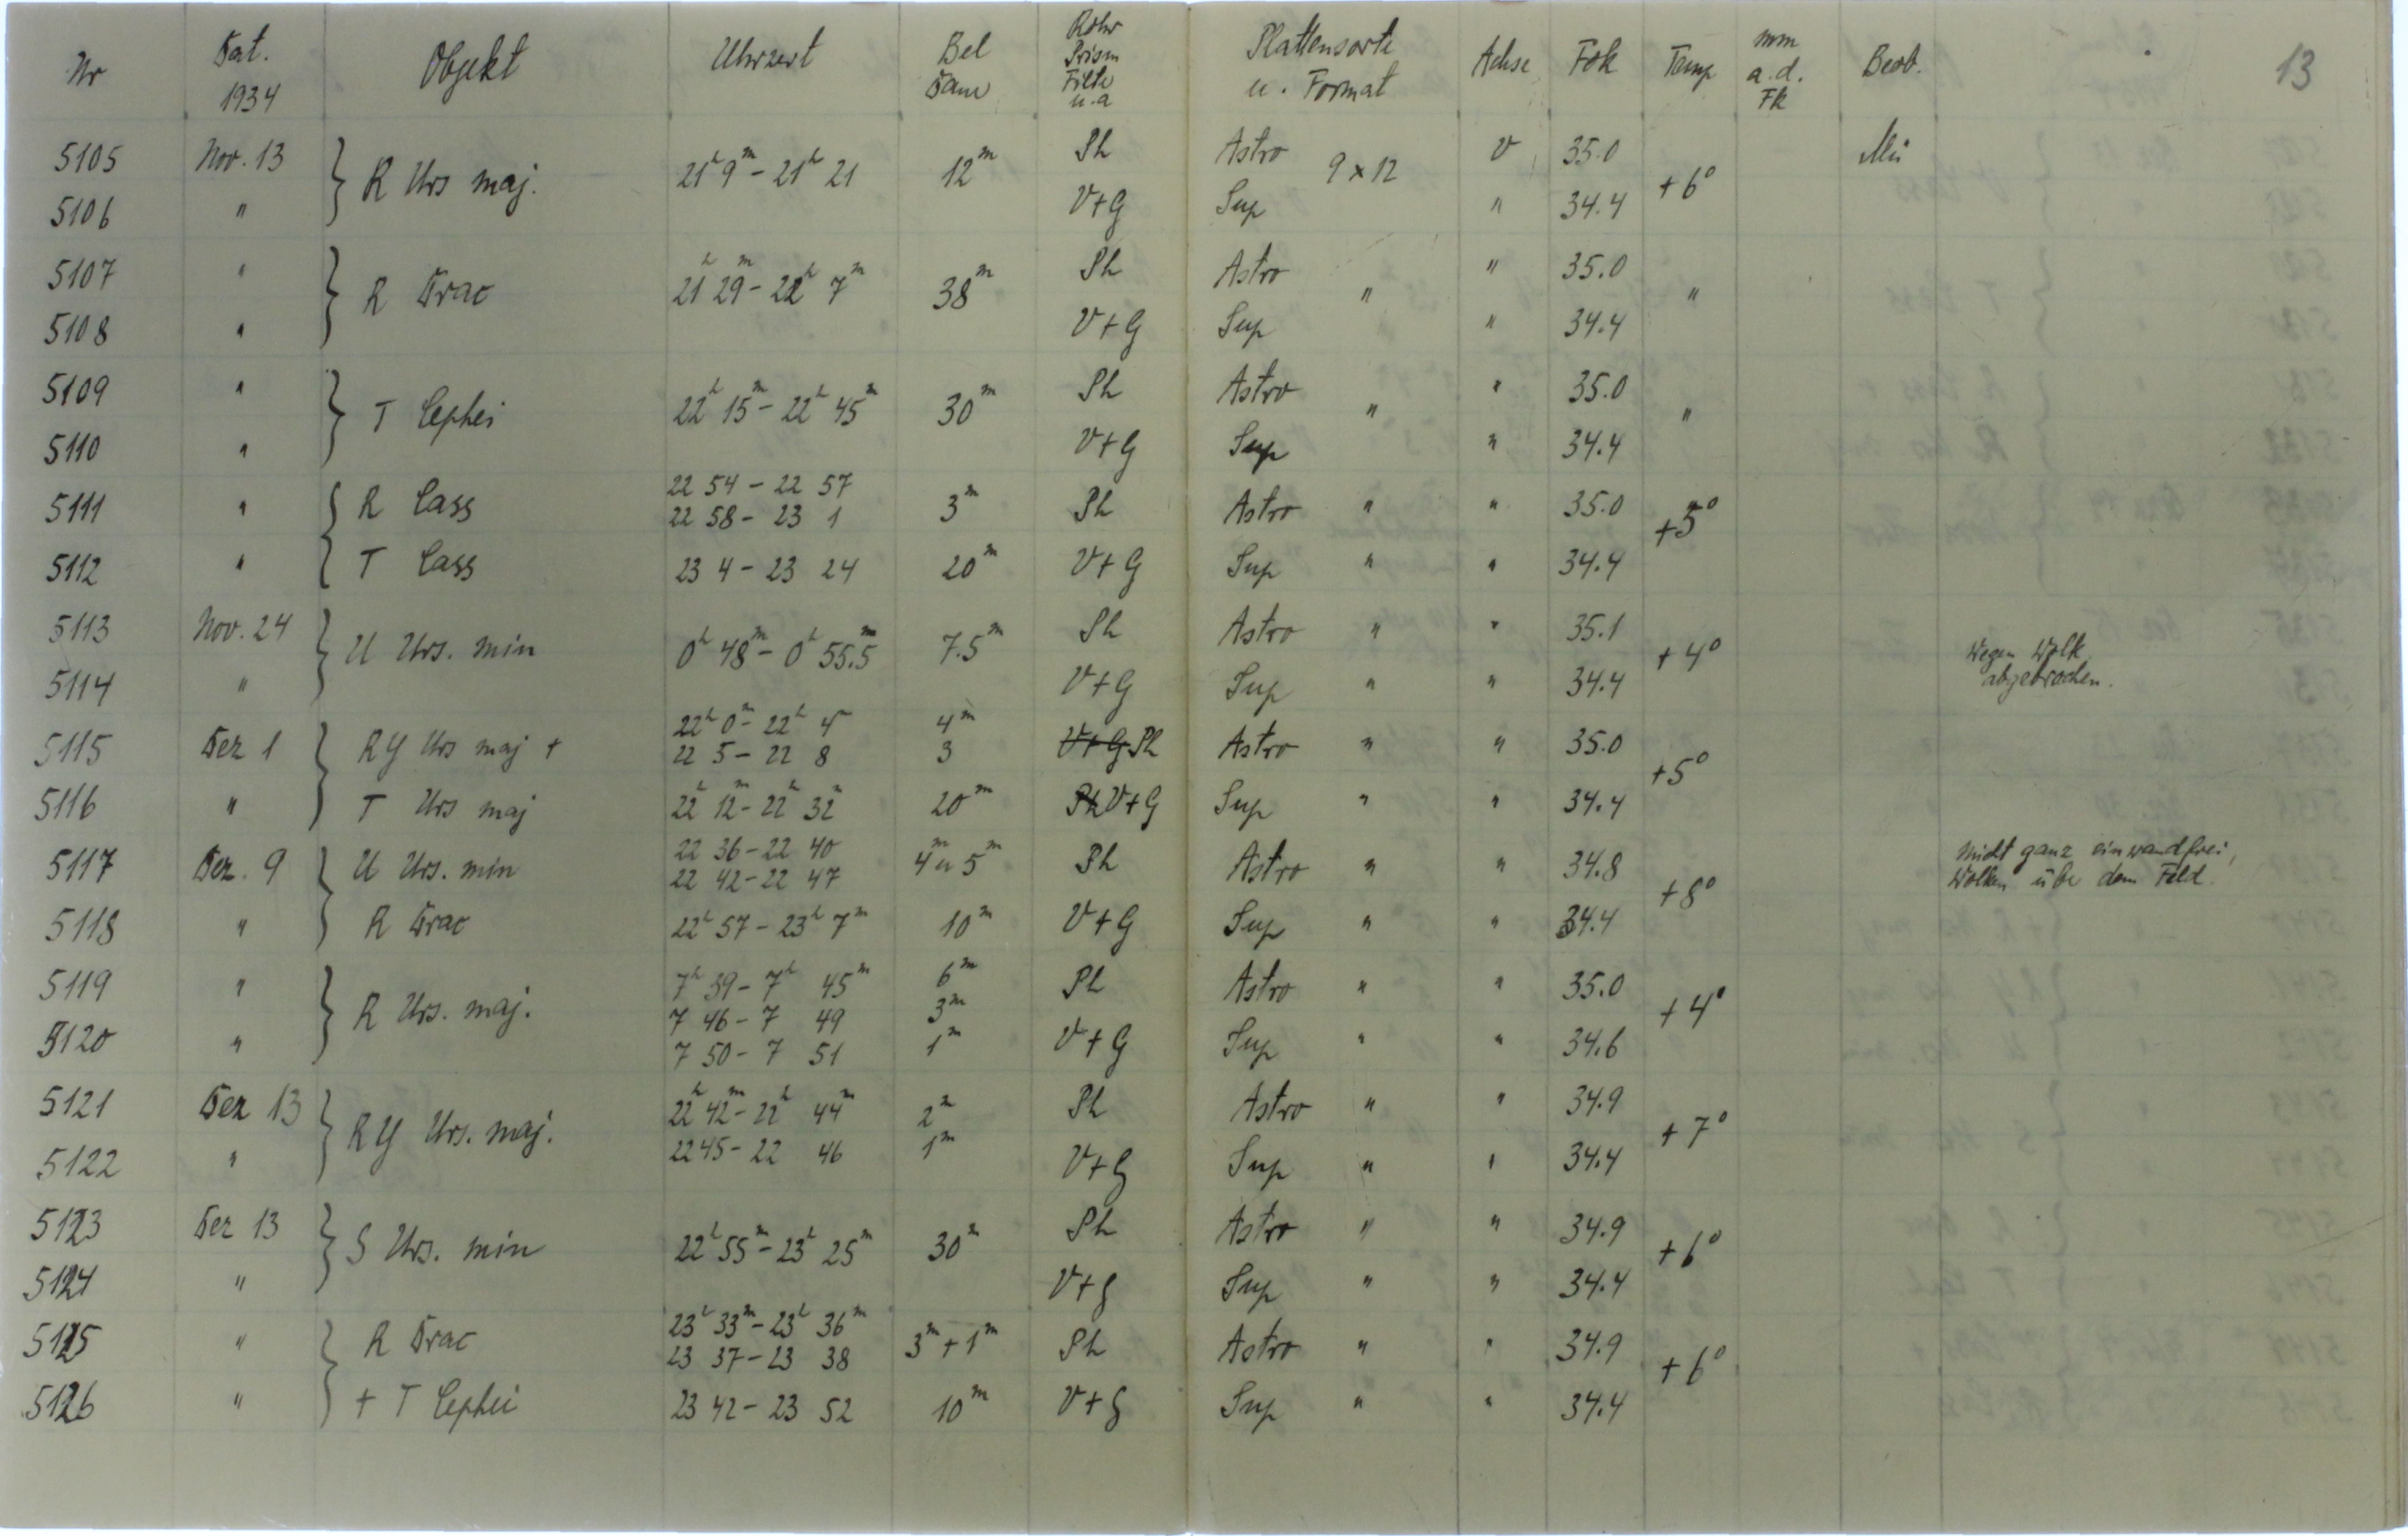 Nr Dat. 1934 Objekt Uhrzeit Bel Dau Rohr Prism Filte u.a Plattensorte u. Format Achse Fok Temp mm a.d. Fk Beob. 13
5105 Nov. 13 } R Urs maj. 21h 9m - 21h 21 12m Ph Astro 9 x 12 V 35.0 +6°
5106 " V+G Sup " 34.4
5107 " } R Drac 21h 29m - 22h 7m 38m Ph Astro " " 35.0 "
5108 " V+G Sup " 34.4
5109 " } T Cephei 22h 15m - 22h 45m 30m Ph Astro " " 35.0 "
5110 " V+G Sup " 34.4
22 54 - 22 57
5111 " { R Cass 22 58 - 23 1 3m Ph Astro " " 35.0 +5°
5112 " T Cass 23 4 - 23 24 20m V+G Sup " " 34.4
5113 Nov. 24 } U Urs. min 0h 48m - 0h 55.5m 7.5m Ph Astro " " 35.1 +4° Wegen Wolk
5114 " V+G Sup " " 34.4 abgebrochen.
22h 0m - 22h 4m 4m
5115 Dez 1 } RY Urs maj + 22 5 - 22 8 3 V+G Ph Astro " " 35.0 +5°
5116 " T Urs maj 22h 12m - 22h 32m 20m Ph V+G Sup " " 34.4
22 36 - 22 40
5117 Dez. 9 } U Urs. min 22 42 - 22 47 4m u 5m Ph Astro " " 34.8 +8° Nicht ganz einwandfrei,
Wolken übe dem Feld.
5118 " R Drac 22h 57 - 23h 7m 10m V+G Sup " " 34.4
5119 " } R Urs. maj. 7h 39 - 7h 45m 6m Ph Astro " " 35.0 +4°
7 46 - 7 49 3m
5120 " 7 50 - 7 51 1m V+G Sup " " 34.6
5121 Dez 13 } RY Urs. maj. 22h 42m - 22h 44m 2m Ph Astro " " 34.9 +7°
5122 " 22 45 - 22 46 1m V+G Sup " " 34.4
5123 Dez 13 } S Urs. min 22h 55m - 23h 25m 30m Ph Astro " " 34.9 +6°
5124 " V+G Sup " " 34.4
23h 33m - 23h 36m
5125 " } R Drac 23 37 - 23 38 3m + 1m Ph Astro " " 34.9 +6°
5126 " + T Cephei 23 42 - 23 52 10m V+G Sup " " 34.4